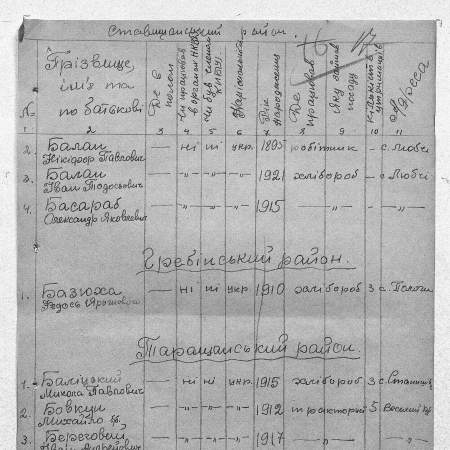 Ставищанський район.
№
Прізвище, ім'я та по батькові
Де в полоні
Чи працював в органах НКВС
Чи був членом КП(б)У
Національність
Рік народження
Де працював
Яку займав посаду
Кількість утриманців
Адреса
1 2 3 4 5 6 7 8 9 10 11
2. Балан Никифор Павлович — ні ні укр. 1895 робітник — с.
3. Балан Іван Тодосьович — -„- -„- -„- 1921 хлібороб — с.
4. Басараб Олександр Яковлевич — -„- -„- -„- 1915 -„- — -„-
Гребінський район.
1. Базюха Федось — ні ні укр 1910 хлібороб 3 с.
Таращанський район.
1. Баліцький Микола Павлович — ні ні укр. 1915 хлібороб 3 с.
2. Бовкун Михайло — -„- -„- -„- 1912 тракторист 5
3. Береговий Іван — -„- -„- -„- 1917 -„- -„-